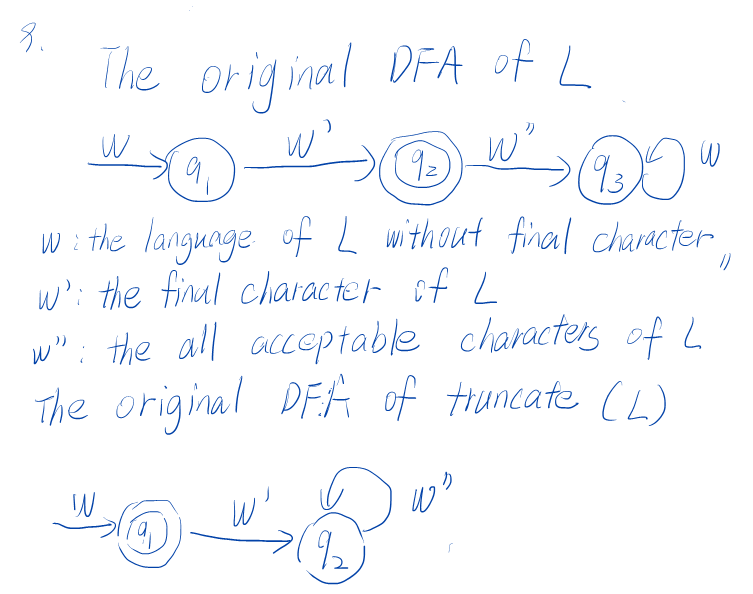 8.
The original DFA of L
w q1 w' q2 w'' q3 w
w : the language of L without final character
w' : the final character of L
w'' : the all acceptable characters of L
The original DFA of truncate (L)
w q1 w' q2 w''